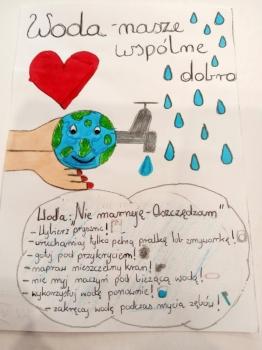 Woda - nasze
wspólne
dobro
Woda: "Nie marnuję - Oszczędzam"
- Wybierz prysznic!
- uruchamiaj tylko pełną pralkę lub zmywarkę!
- gotuj pod przykryciem!
- napraw nieszczelny kran!
- nie myj naczyń pod bieżącą wodą!
- wykorzystuj wodę ponownie!
- zakręcaj wodę podczas mycia zębów!